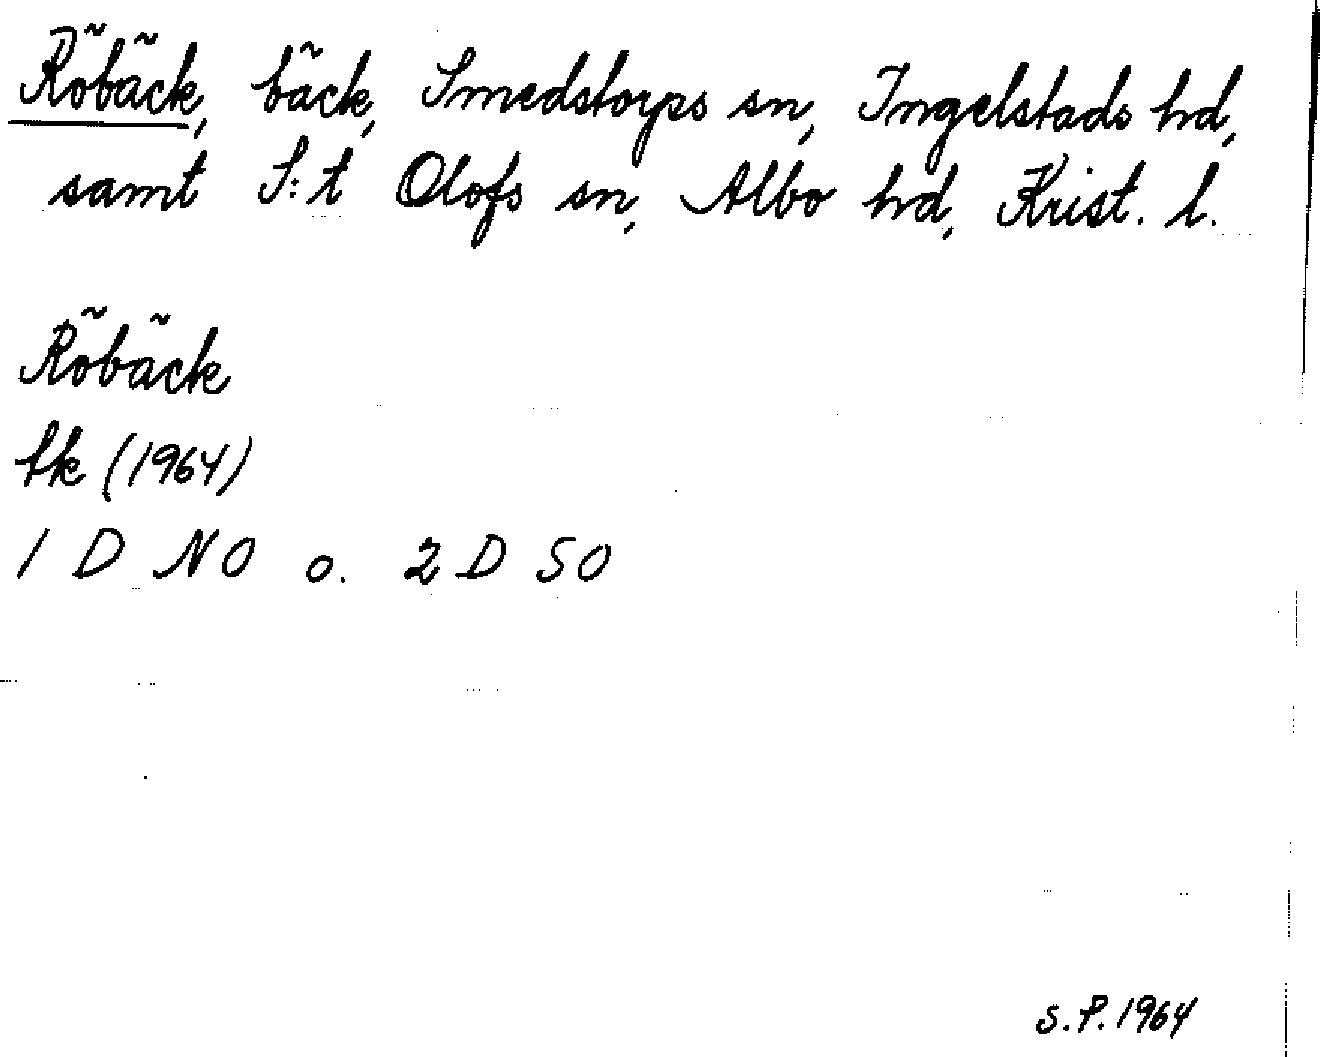 Röbäck, bäck, Smedstorps sn, Ingelstads hd,
samt S:t Olofs sn, Albo hd, Krist. l.
Röbäck
fk (1964)
1 D NO o. 2 D SO
S.P. 1964